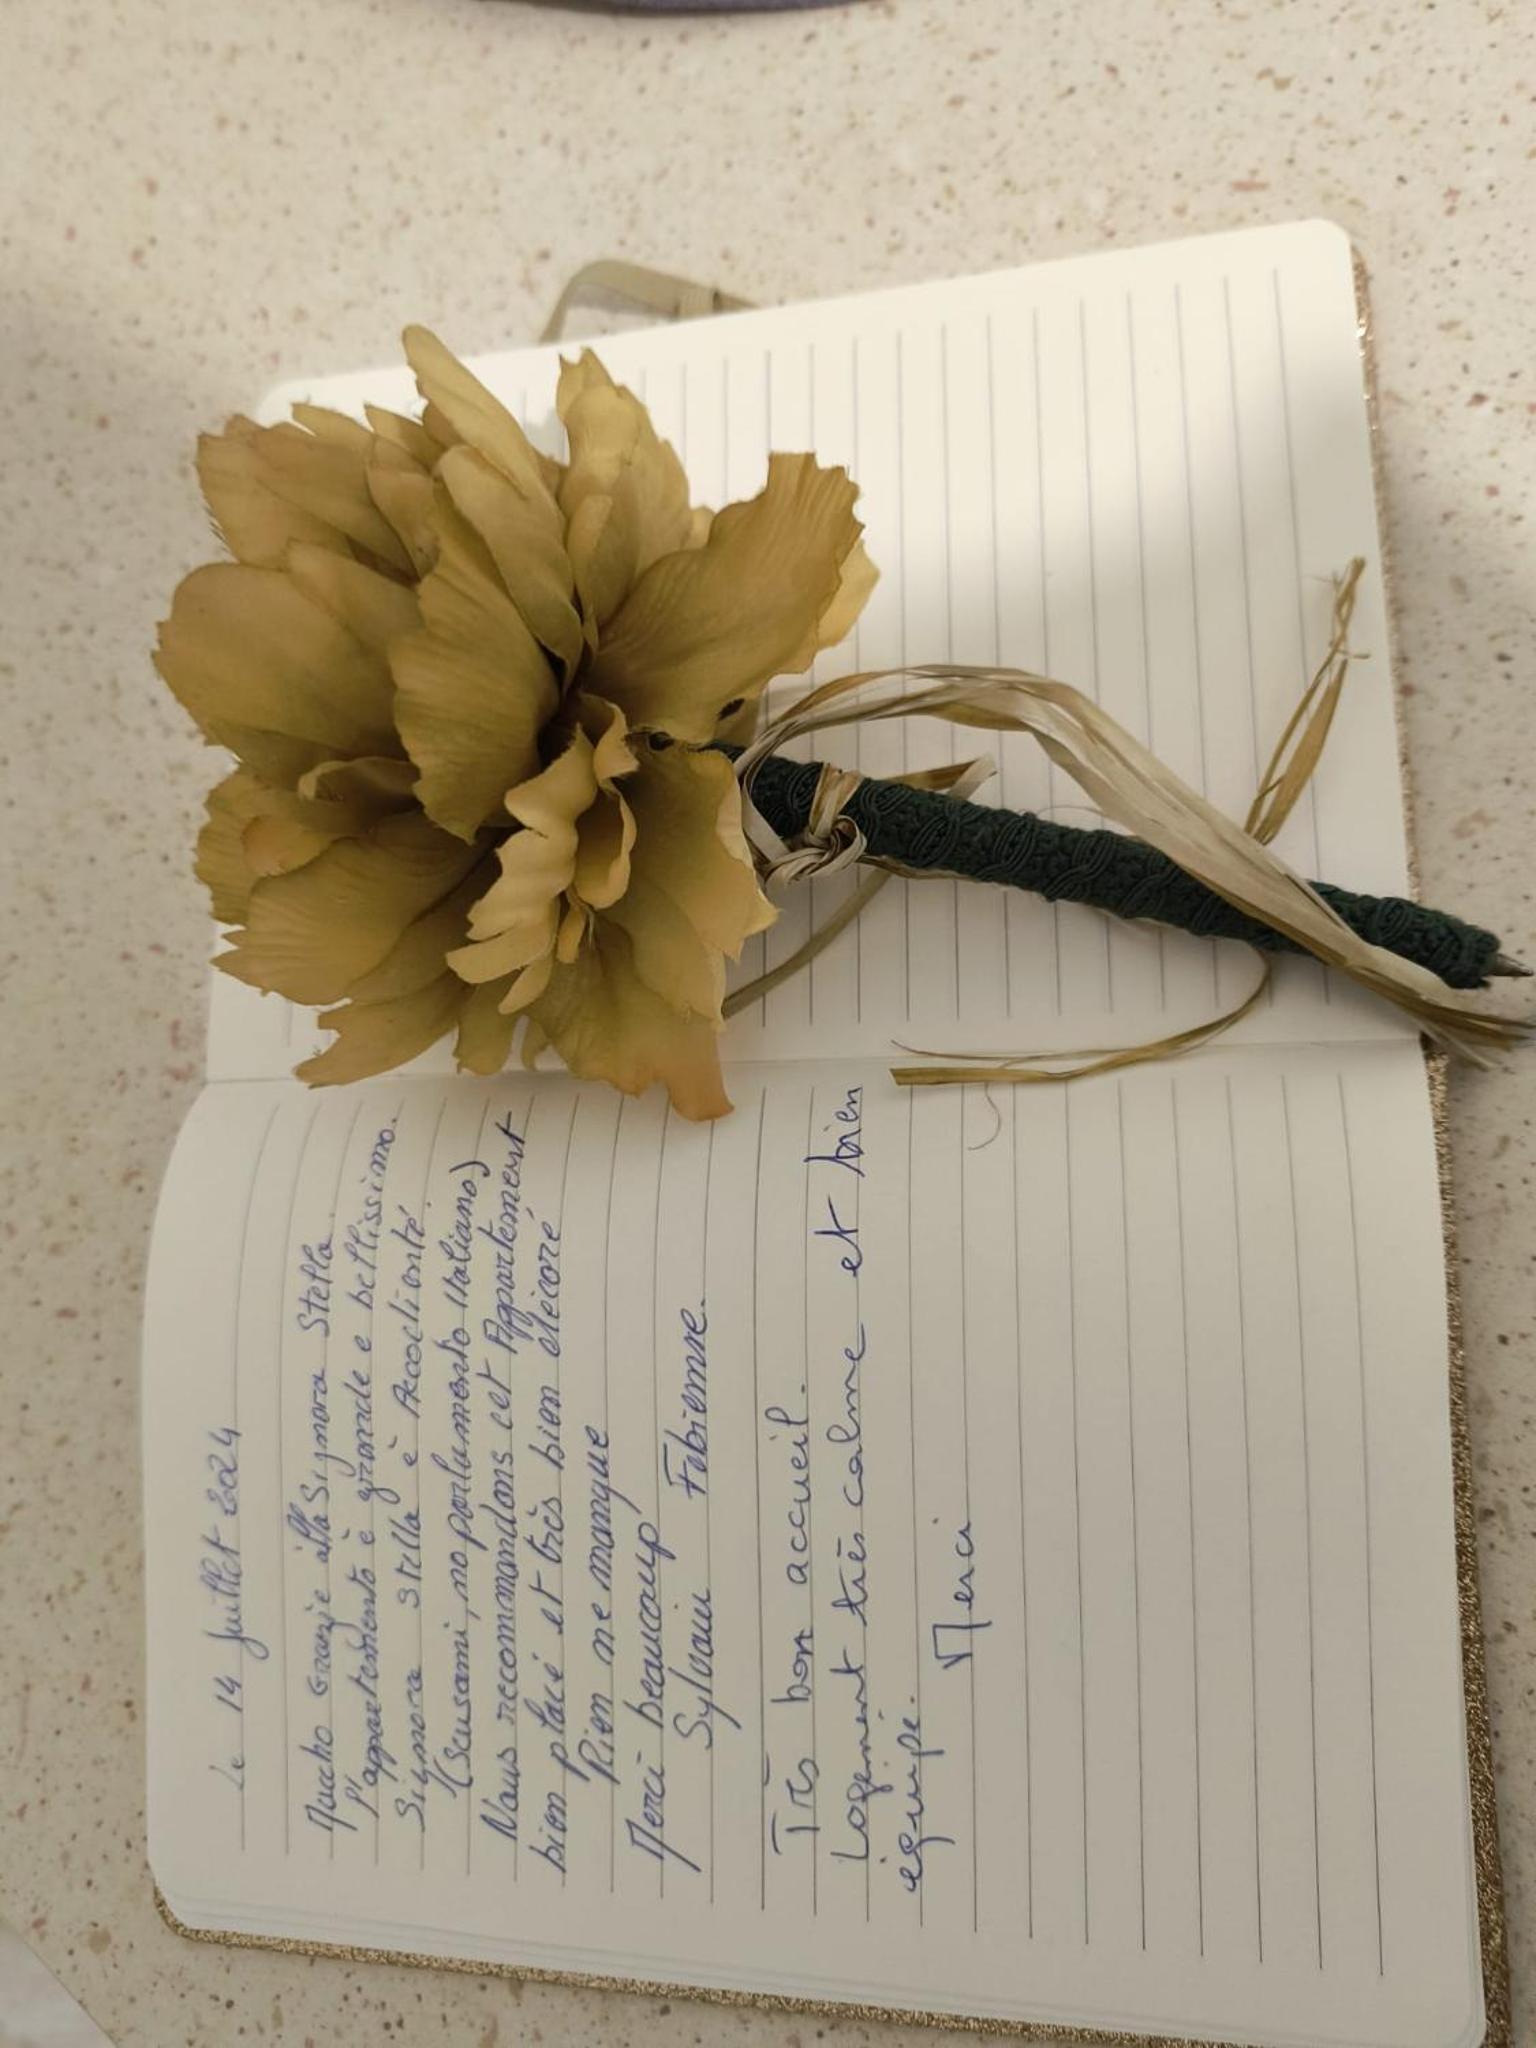 Le 14 Juillet 2024
Muccho Granzie alla Signora Stella.
l'appartemento è grande e bellissimo.
Signora Stella è Accoclienté.
(Scusami, no parlamento Italiano)
Nous recommandons cet Appartement
bien placé et très bien décoré
Rien ne manque
Merci beaucoup
Sylvain Fabienne.
Très bon accueil.
Logement très calme et bien
équipé.
Merci